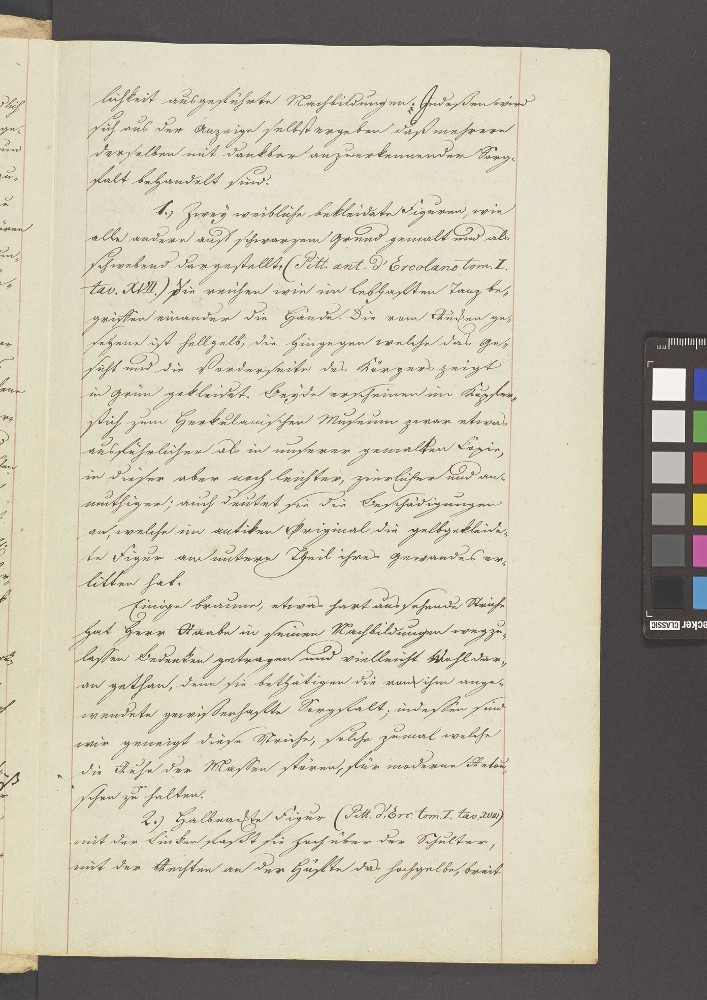 lichkeit ausgeführte Nachbildungen; Indeßen wird
sich aus der Anzeige selbst ergeben daß mehrere
derselben mit dankbar anzuerkennender Sorg-
falt behandelt sind.
1.) Zwey weibliche bekleidete Figuren, wie
alle andern auf schwarzem Grund gemalt und als
schwebend dargestellt. (Pitt. ant. d'Ercolano tom. I.
tav. XVII.) Sie reichen wie im lebhaften Tanz be-
griffen einander die Hände. Die vom Rücken ge-
sehene ist hellgelb, die hingegen welche das Ge-
sicht und die Vorderseite des Körpers zeigt
in Grün gekleidet. Beyde erscheinen im Kupfer-
stich zum Herkulanischen Museum zwar etwas
ausführlicher als in unserer gemalten Copie,
in dieser aber noch leichter, zierlicher und an-
muthiger; auch deutet sie die Beschädigungen
an, welche im antiken Original die gelbgekleide-
te Figur am untern Theil ihres Gewandes er-
litten hat.
Einige braune, etwas hart aussehende Striche
hat Herr Raabe in seinen Nachbildungen wegzu-
lassen Bedenken getragen und vielleicht Wohl dar-
an gethan, denn sie bethätigen die von ihm ange-
wendete gewissenhafte Sorgfalt; indessen sind
wir geneigt diese Striche, solche zumal welche
die Ruhe der Massen stören, für moderne Retou-
schen zu halten.
2.) Halbnackte Figur (Pitt. d'Erc. tom. I. tav. XVIII)
mit der Linken faßt sie hoch über der Schulter,
mit der Rechten an der Hüfte das hochgelbe, breit